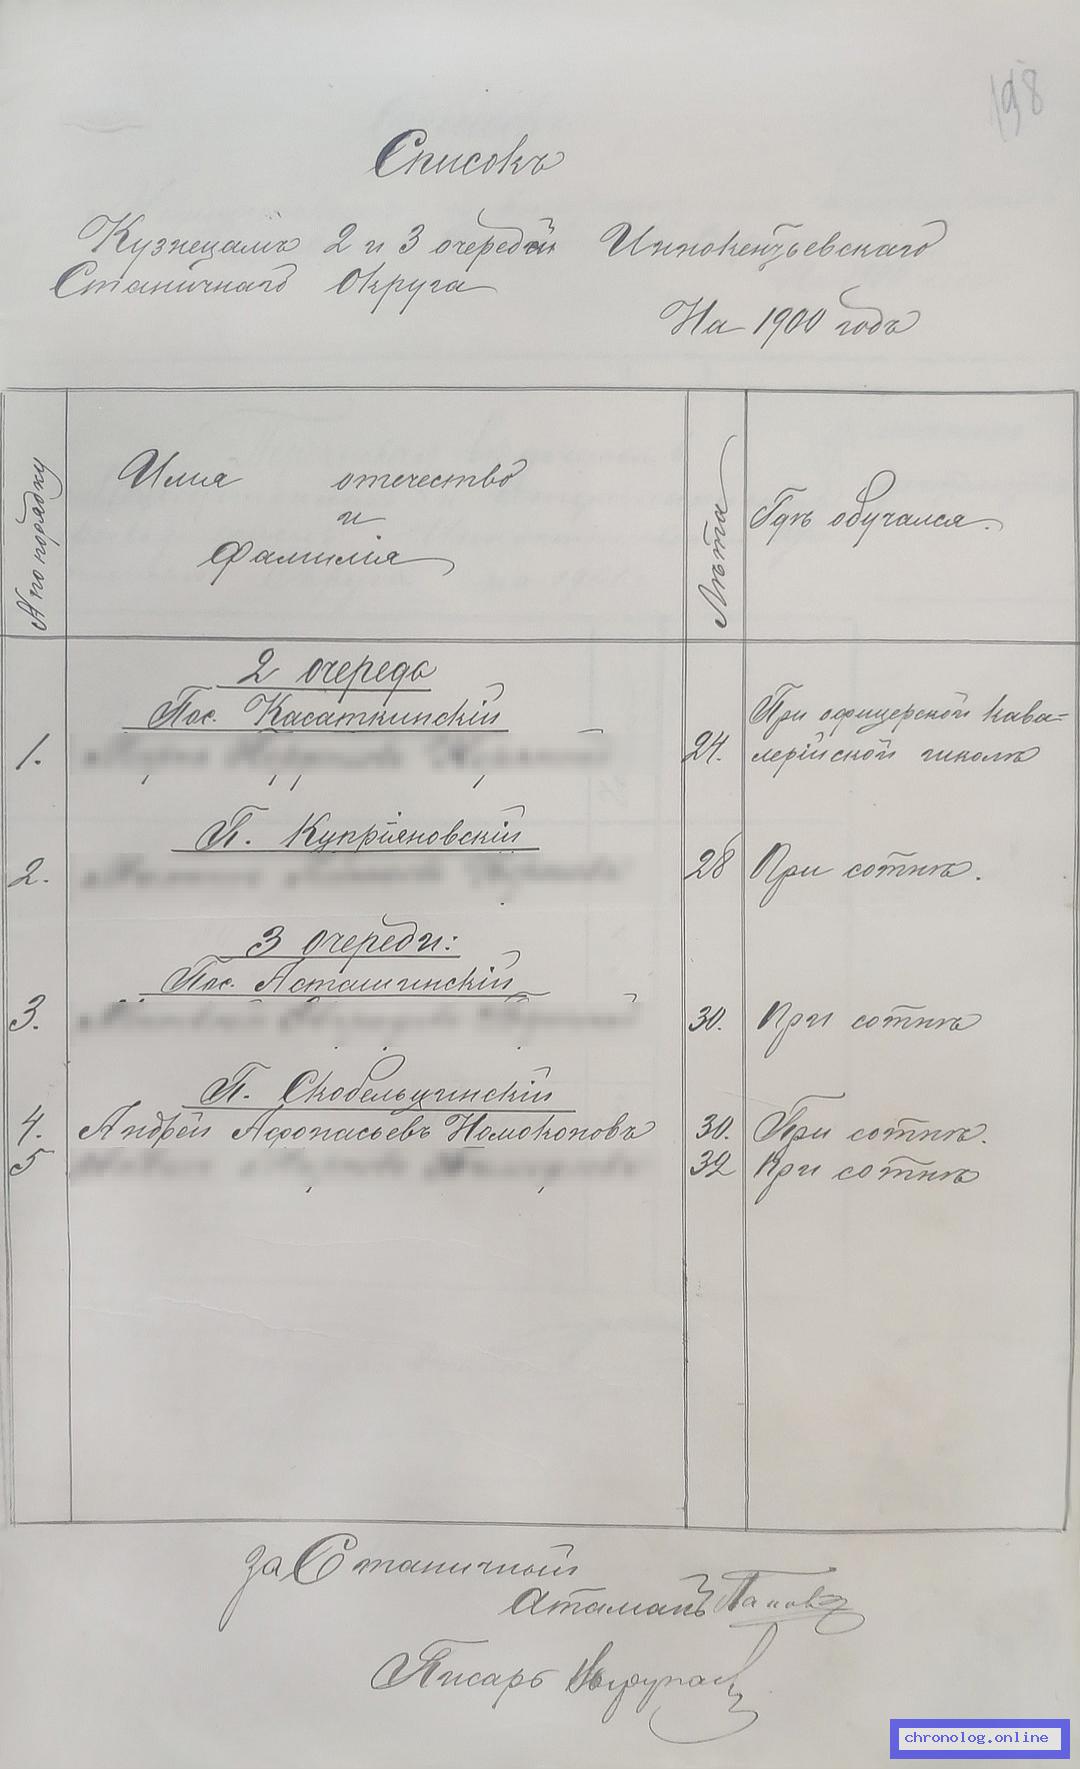 198
Списокъ
Кузнецамъ 2 и 3 очередей Иннокентьевскаго
Станичнаго Округа
На 1900 годъ
№ по порядку
Имя отечество
и
Фамилія
Лѣта
Гдѣ обучался.
2 очередь
Пос. Касаткинскій
1.
24.
При офицерской кава=
лерійской школѣ
П. Купріяновскій
2.
28
При сотнѣ.
3 очереди:
Пос. Асташинскій
3.
30.
При сотнѣ
П. Скобельцинскій
4. Андрей Афонасьевъ Номоконовъ 30. При сотнѣ.
5
32
При сотнѣ
За Станичный
Атаманъ Паповъ
Писарь
chronolog.online